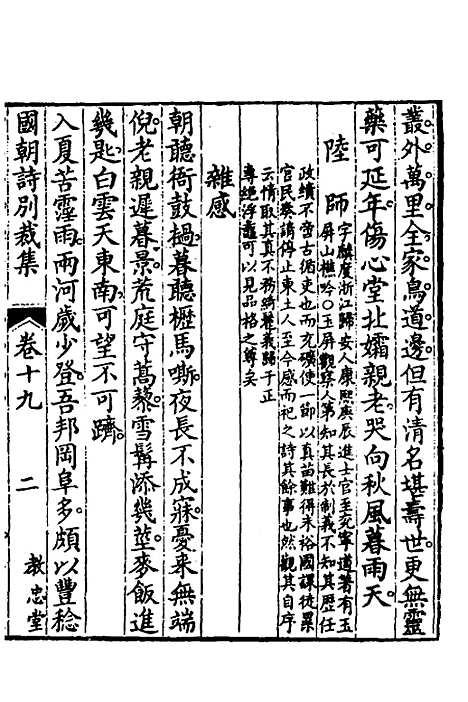 叢外萬里全家鳥道邊但有清名堪壽世更無靈
藥可延年傷心堂北孀親老哭向秋風暮雨天
陸師
字麟度浙江歸安人康熙庚辰進士官至兖寧道著有玉
屏山樵吟○玉屏觀察人第知其長於制義不知其歷任
政績不啻古循吏也而充礦使一節以真苗難得米裕國課徒累
官民奏請停止東土人至今感而祀之詩其餘事也然觀其自序
云情取其真不務綺美歸于正
專絕浮豔可以見品格之尊矣
雜感
朝聽衙鼓撾暮聽櫪馬嘶夜長不成寐憂來無端
倪老親遲暮景荒庭守蒿藜雪髯添幾莖麥飯進
幾匙白雲天東南可望不可躋
入夏苦霪雨兩河歲少登吾邦岡阜多頗以豐稔
國朝詩別裁集
卷十九
二
教忠堂